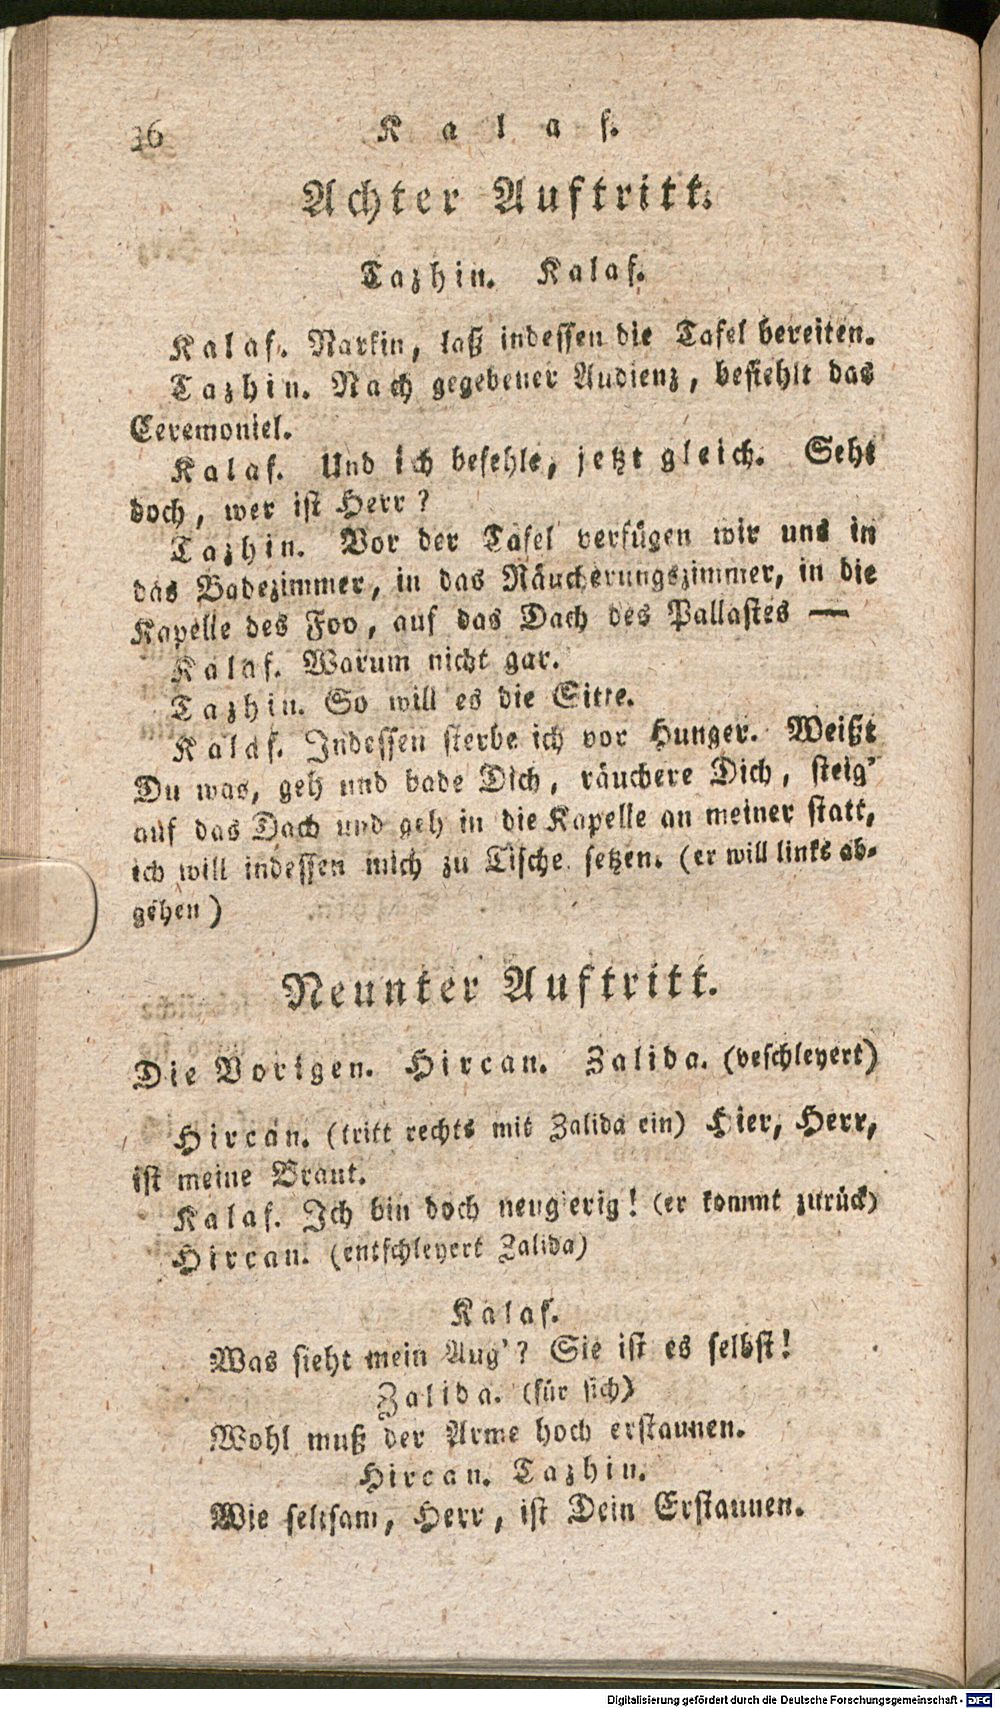 36 Kalaf.
Achter Auftritt.
Tazhin. Kalaf.
Kalaf. Narkin, laß indessen die Tafel bereiten.
Tazhin. Nach gegebener Audienz, befiehlt das
Ceremoniel.
Kalaf. Und ich befehle, jetzt gleich. Seht
doch, wer ist Herr?
Tazhin. Vor der Tafel verfügen wir uns in
das Badezimmer, in das Räucherungszimmer, in die
Kapelle des Foo, auf das Dach des Pallastes —
Kalaf. Warum nicht gar.
Tazhin. So will es die Sitte.
Kalaf. Indessen sterbe ich vor Hunger. Weißt
Du was, geh und bade Dich, räuchere Dich, steig'
auf das Dach und geh in die Kapelle an meiner statt,
ich will indessen mich zu Tische setzen. (er will links ab-
gehen)
Neunter Auftritt.
Die Vorigen. Hircan. Zalida. (veschleyert)
Hircan. (tritt rechts mit Zalida ein) Hier, Herr,
ist meine Braut.
Kalaf. Ich bin doch neugierig! (er kommt zurück)
Hircan. (entschleyert Zalida)
Kalaf.
Was sieht mein Aug'? Sie ist es selbst!
Zalida. (für sich)
Wohl muß der Arme hoch erstaunen.
Hircan. Tazhin.
Wie seltsam, Herr, ist Dein Erstaunen.
Digitalisierung gefördert durch die Deutsche Forschungsgemeinschaft - DFG